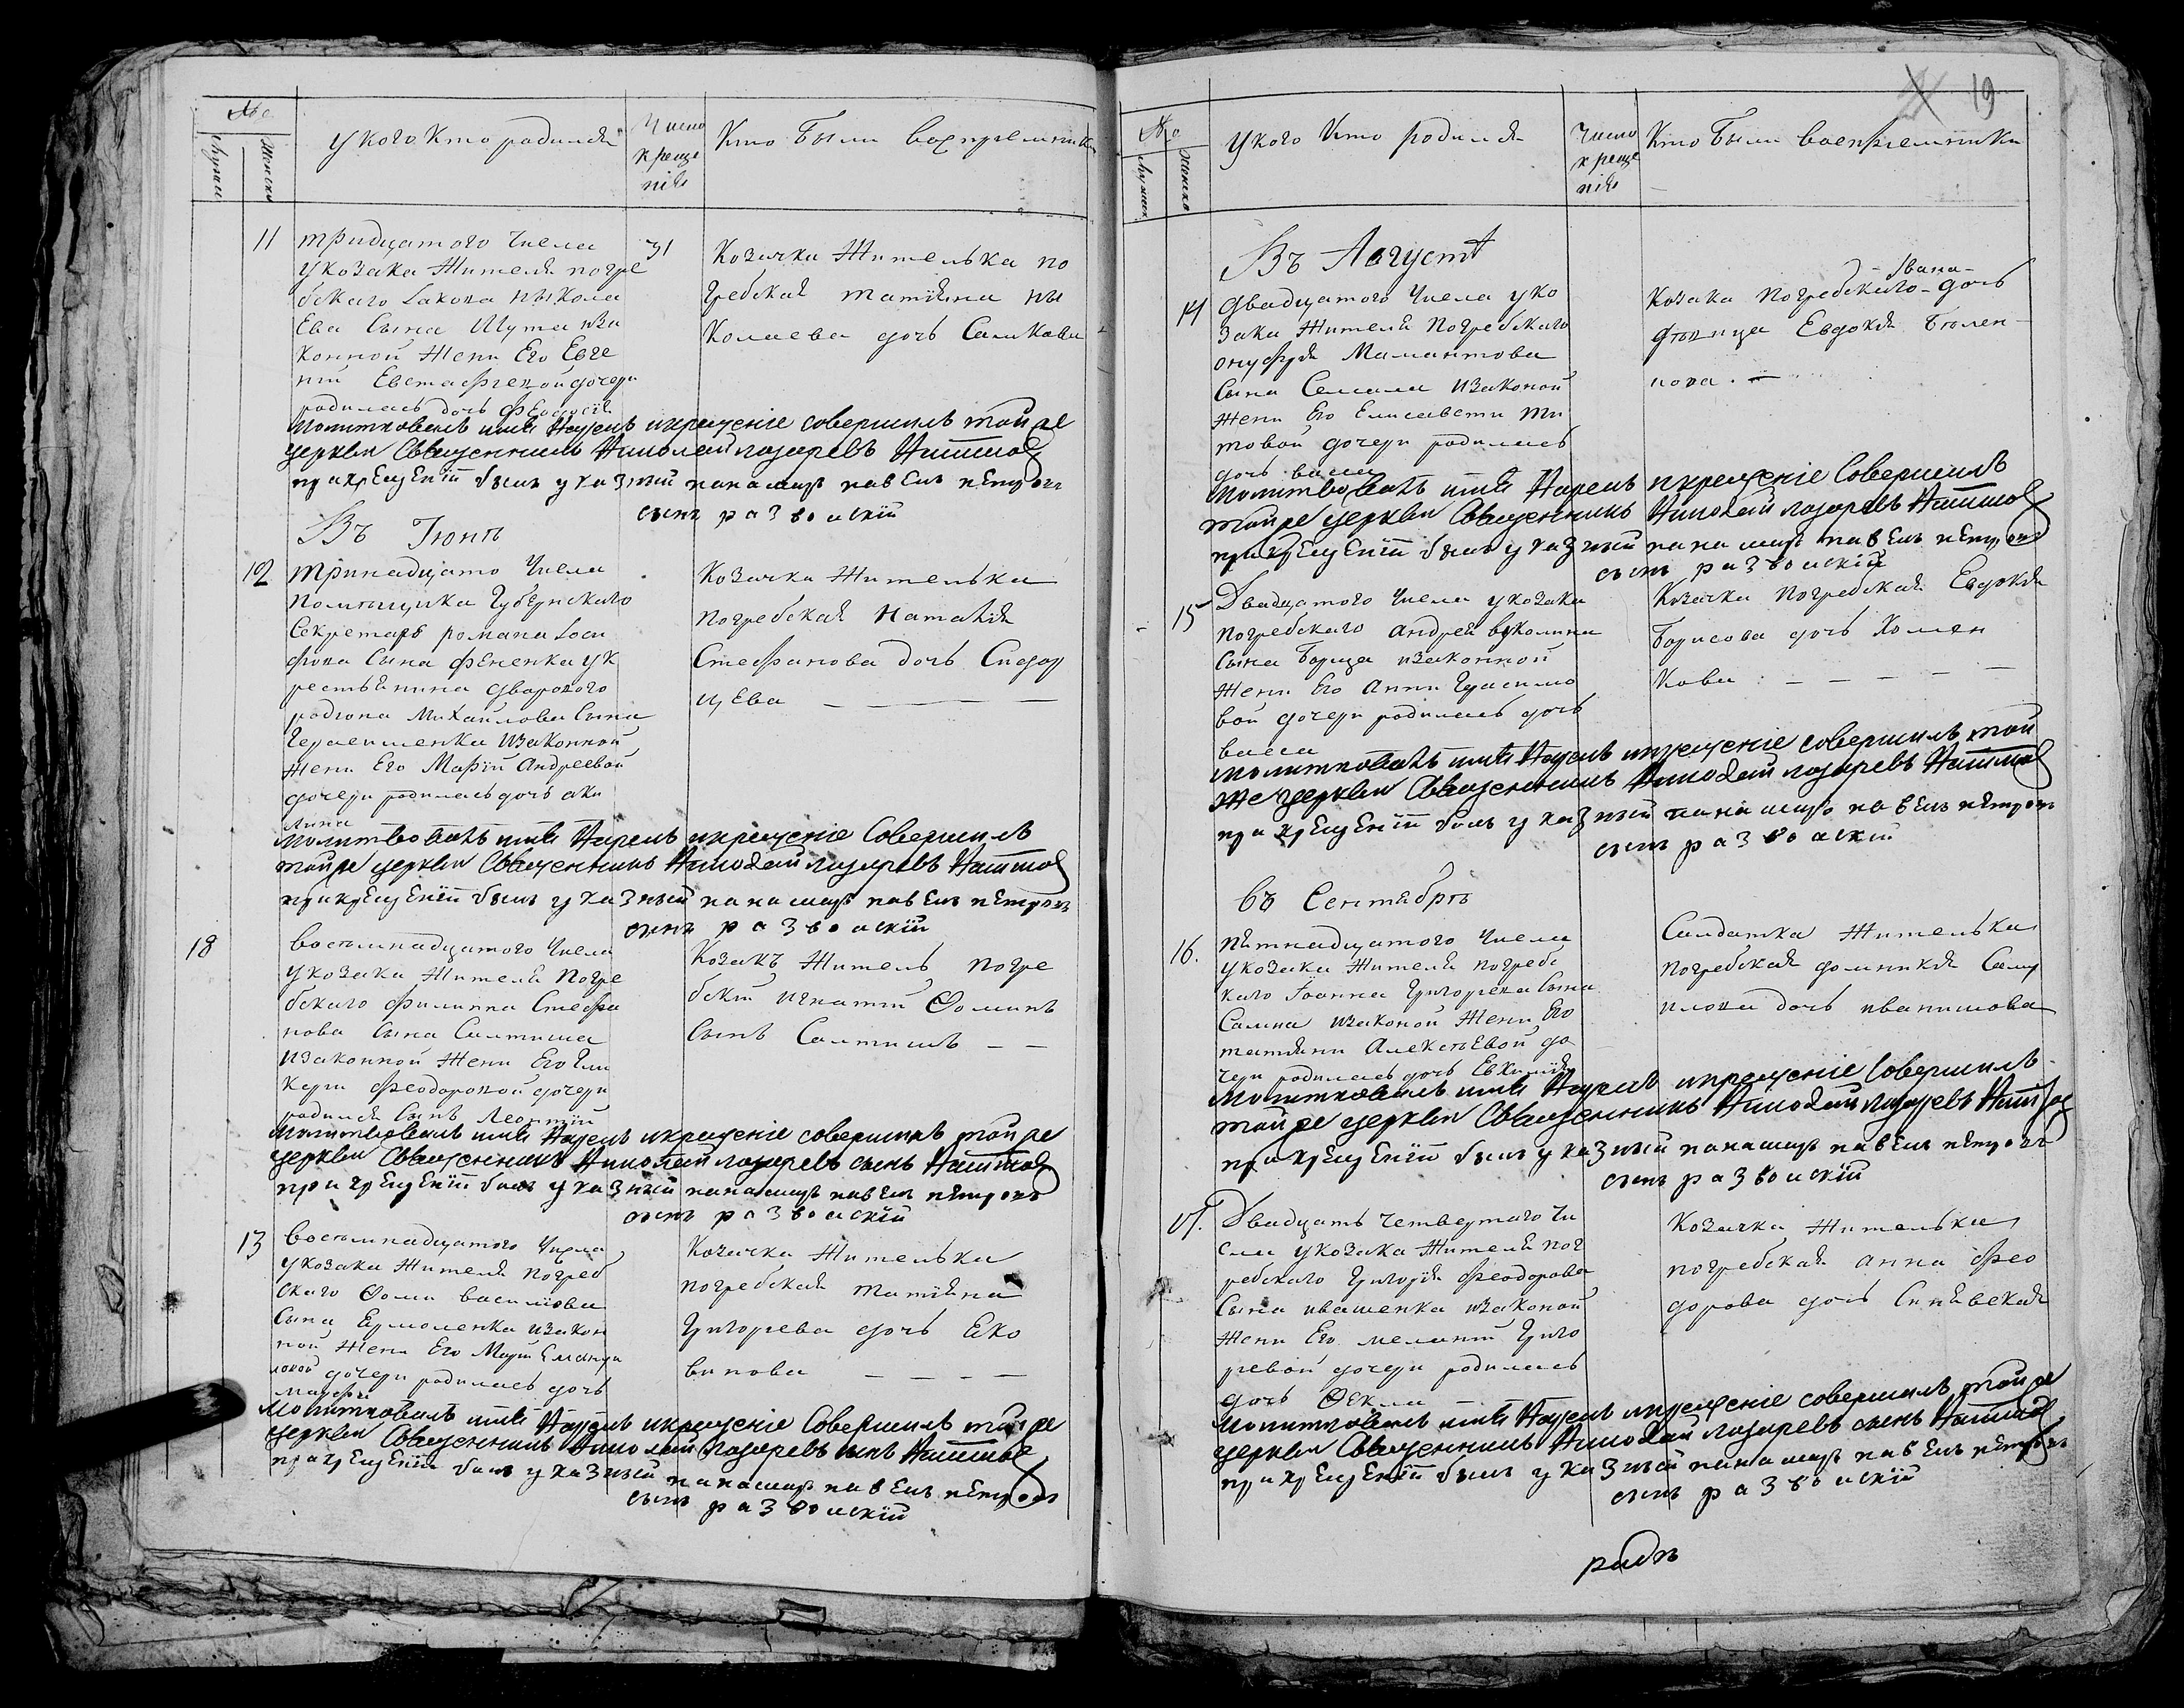 №
Мужеск
Женска
У кого кто родился
Число
креще
нія
Кто были воспріемники
11
тридцатого числа
у козака Жителя погре
бского Іакова Никола
Ева Сына Шута изза
конной Жени Его Евге
ніи Евстафіевой дочери
родилась дочь Феодосія
31
Козачка Жителька по
гребская татіяна Ни
Колаева дочь
молитвовалъ имя Нарекъ икрещеніе совершилъ той же
церкви Священникъ Николай лазаревъ
при крещеніи былъ указный панамарь павелъ петровъ
сынъ
Въ Іюнѣ
12
тринадцато Числа
Помѣщика Губернскаго
Секретаря романа Іоси
фова Сына Фененка у к
рестьянина двороваго
родіона Михайлова Сына
Герасименка изаконной
жени Его Маріи Андреевой
дочери родилась дочь аки
лина
Козачка Жителька
погребская Наталія
Стефанова дочь Сидор
цева
Молитвовалъ имя Нарекъ икрещеніе Совершилъ
той же церкви Священникъ Николай лазаревъ
при крещеніи былъ указный панамарь павелъ петровъ
сынъ
18
восѣмнадцатого Числа
у козака Жителя Погре
бского филиппа Стефа
нова Сына Салтиша
изаконной Жени Его Гли
Кери Феодоровой дочери
родился Сынъ Леонтій
Козакъ Житель погре
бскій игнатій Ѳоминъ
Сынъ Салтишъ
Молитвовалъ имя Нарекъ икрещеніе совершилъ той же
церкви Священникъ Николай лазаревъ сынъ
при крещеніи былъ указный панамарь павелъ петровъ
сынъ
13
восѣмнадцатого Числа
у козака Жителя погреб
ского Ѳоми василіова
Сына Ермоленка изакон
ной Жени Его Маріи
дочери родилась дочь
марфа
Козачка Жителька
погребская татіяна
Григорьева дочь Яко
винова
Молитвовалъ имя Нарекъ икрещеніе Совершилъ той же
церкви Священникъ Николай лазаревъ сынъ
при крещеніи былъ указный панамарь павелъ петровъ
сынъ
19
№
Мужеск
Женско
У кого кто родился
Число
креще
нія
Кто были воспріемники
Въ Августѣ
14
двадцатого Числа у ко
зака Жителя Погребскаго
онуфрія Мамантова
Сына Семала изаконой
жени Его Елисавети Ти
товой дочери родилась
дочь васса
Ивана
Козака погребскаго дочь
дѣвица Евдокія
нова
молитвовалъ имя Нарекъ икрещеніе Совершилъ
той же церкви Священникъ Николай лазаревъ
при крещеніи былъ указный панамарь павелъ петровъ
сынъ
15
Двадцатого Числа у козака
погребскаго андрея вуколина
Сына Борца изаконной
жени Его Анни Герасимо
вой дочери родилась дочь
васса
Козачка погребская Евдокія
Борисова дочь Хомен
кова
молитвовалъ имя Нарекъ икрещеніе совершилъ той
же церкви Священникъ Николай лазаревъ
при крещеніи былъ указный панамарь павелъ петровъ
сынъ
въ Сентябрѣ
16.
пятнадцатого Числа
у козака Жителя погребс
каго Іоанна Григорева Сына
Самна изаконой Жени Его
татіяни Алексѣевой до
чери родилась дочь Евхимія
Салдатка Жителька
погребская домникія Сам
илова дочь иванишова
Молитвовалъ имя Нарекъ икрещеніе Совершилъ
той же церкви Священникъ Николай лазаревъ
при крещеніи былъ указный панамарь павелъ петровъ
сынъ
17.
Двадцать Четвертаго Чи
сла у козака Жителя пог
ребскаго Григорія Феодорова
Сына ивашенка изаконой
Жени Его меланіи Григо
ріевой дочери родилась
дочь Ѳекла
Козачка Жителька
погребская анна Фео
дорова дочь Синявская
Молитвовалъ имя Нарекъ икрещеніе совершилъ той же
церкви Священникъ Николай лазаревъ сынъ
при крещеніи былъ указный панамарь павелъ петровъ
сынъ